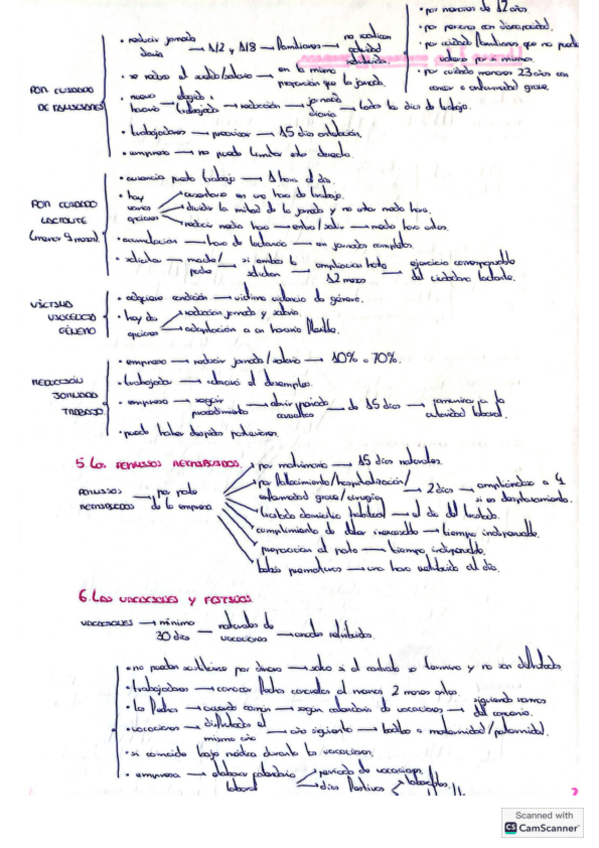 · por menores de 12 años
· por personas con discapacidad.
· por cuidado familiares que no pueda valerse por sí mismos.
· por cuidado menores 23 años con cancer o enfermedad grave.
POR CUIDADO DE FAMILIARES
· reducir jornada diaria → 1/2 y 1/8 → familiares → no realicen actividad retribuida.
· se reduce el sueldo/salario → en la misma proporción que la jornada.
· nuevo horario → elegido x trabajador → reducción → jornada diaria → todos los días de trabajo.
· trabajadores → preavisar → 15 días antelación.
· empresa → no puede limitar este derecho.
POR CUIDADO LACTANTE (menor 9 meses)
· ausencia puesto trabajo → 1 hora al día.
· hay varias opciones
ausentarse en una hora de trabajo.
dividir la mitad de la jornada y no estar media hora.
reducir media hora → entrar/salir → media hora antes.
· acumulación → hora de lactancia → en jornadas completas.
· solicitar → madre/padre → si ambos lo solicitan → ampliación hasta 12 meses → ejercicio corresponsable del cuidado lactante.
VÍCTIMA VIOLENCIA GÉNERO
· adquiere condición → víctima violencia de género.
· hay dos opciones
reducción jornada y salario.
adaptación a un horario flexible.
REDUCCIÓN JORNADA TRABAJO
· empresa → reducir jornada/salario → 10% o 70%.
· trabajador → el desempleo.
· empresa → seguir procedimiento → abrir periodo consultas → de 15 días → comunicar a la autoridad laboral.
· puede haber despidos posteriores.
5. Los PERMISOS RETRIBUIDOS.
PERMISOS RETRIBUIDOS → por parte de la empresa
por matrimonio → 15 días naturales.
por fallecimiento/hospitalización/enfermedad grave/cirugía → 2 días → ampliándose a 4 si es desplazamiento.
traslado domicilio habitual → el día del traslado.
cumplimiento de deber inexcusable → tiempo indispensable.
preparación al parto → tiempo indispensable.
bebés prematuros → una hora retribuida al día.
6. Las VACACIONES Y FESTIVOS.
VACACIONES → mínimo 30 días → naturales de vacaciones → anuales retribuidas.
· no pueden sustituirse por dinero → salvo si el contrato se termina y no son disfrutadas.
· trabajadores → conocer fechas concretas al menos 2 meses antes.
· las fechas → acuerdo común → según calendario de vacaciones → siguiendo normas del convenio.
· vacaciones → disfrutado el mismo año → año siguiente → bajas o maternidad/paternidad.
· si coincide baja médica durante las vacaciones.
· empresa → elaborar calendario laboral
periodo de vacaciones
días festivos
Scanned with
CS CamScanner